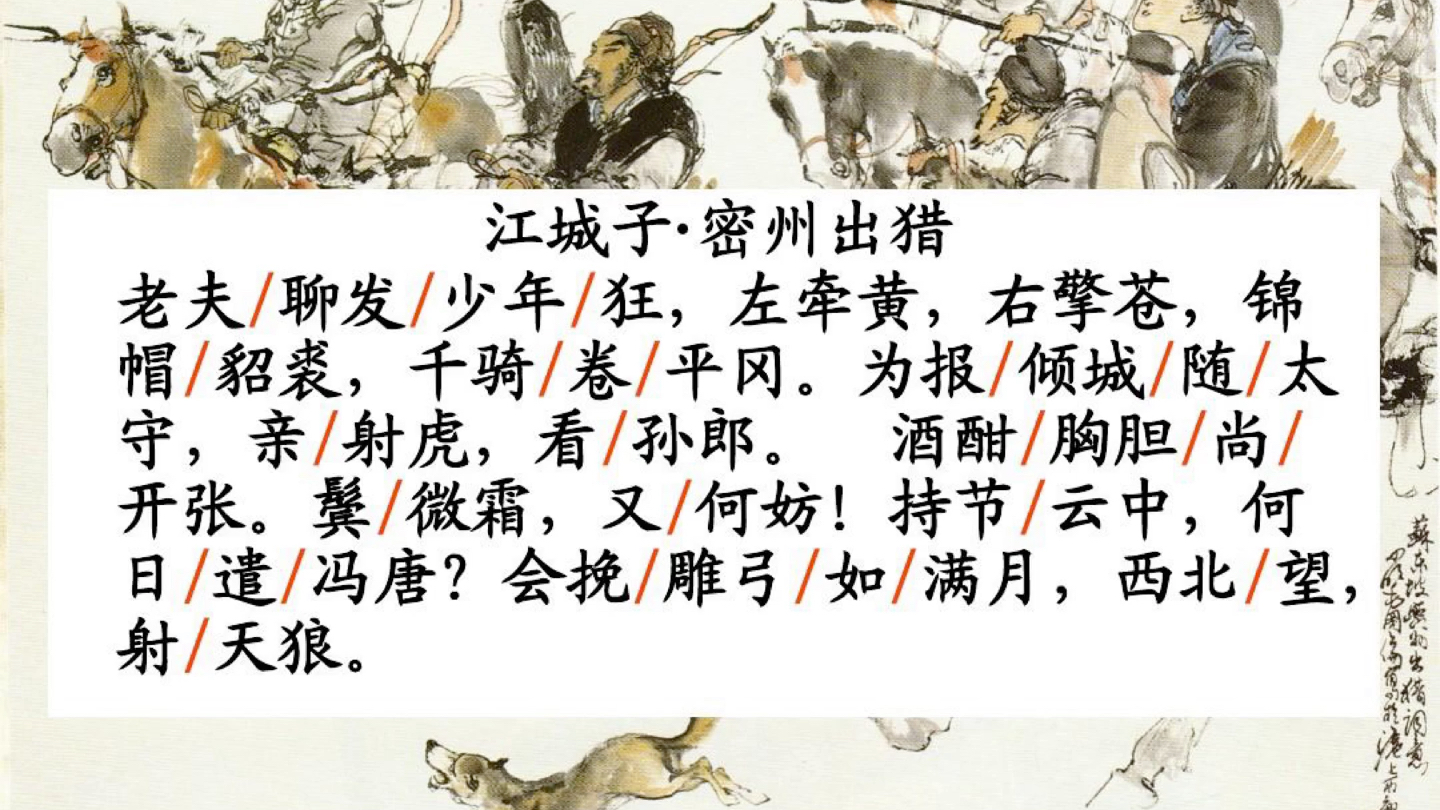 江城子·密州出猎
老夫/聊发/少年/狂，左牵黄，右擎苍，锦
帽/貂裘，千骑/卷/平冈。为报/倾城/随/太
守，亲/射虎，看/孙郎。　酒酣/胸胆/尚/
开张。鬓/微霜，又/何妨！持节/云中，何
日/遣/冯唐？会挽/雕弓/如/满月，西北/望，
射/天狼。